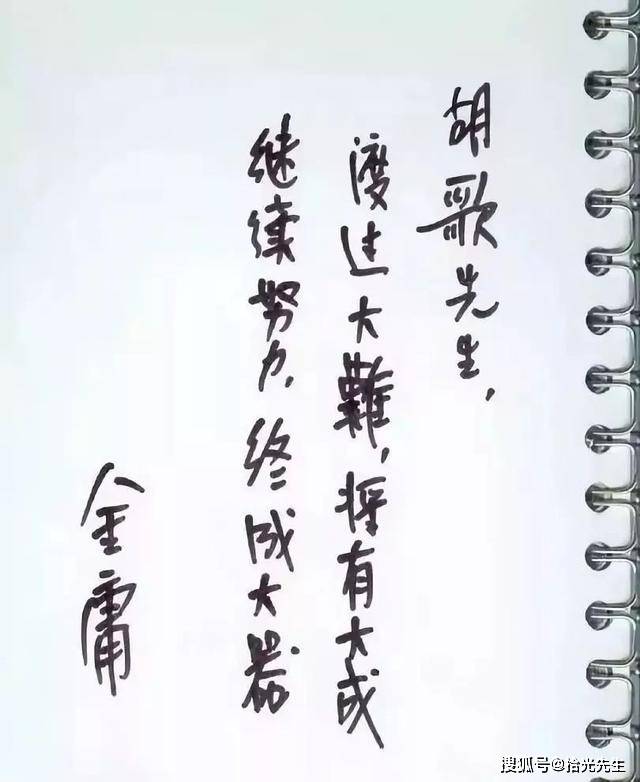 胡歌先生，
渡过大難，将有大成
继续努力，终成大器
金庸
搜狐号@拾光先生